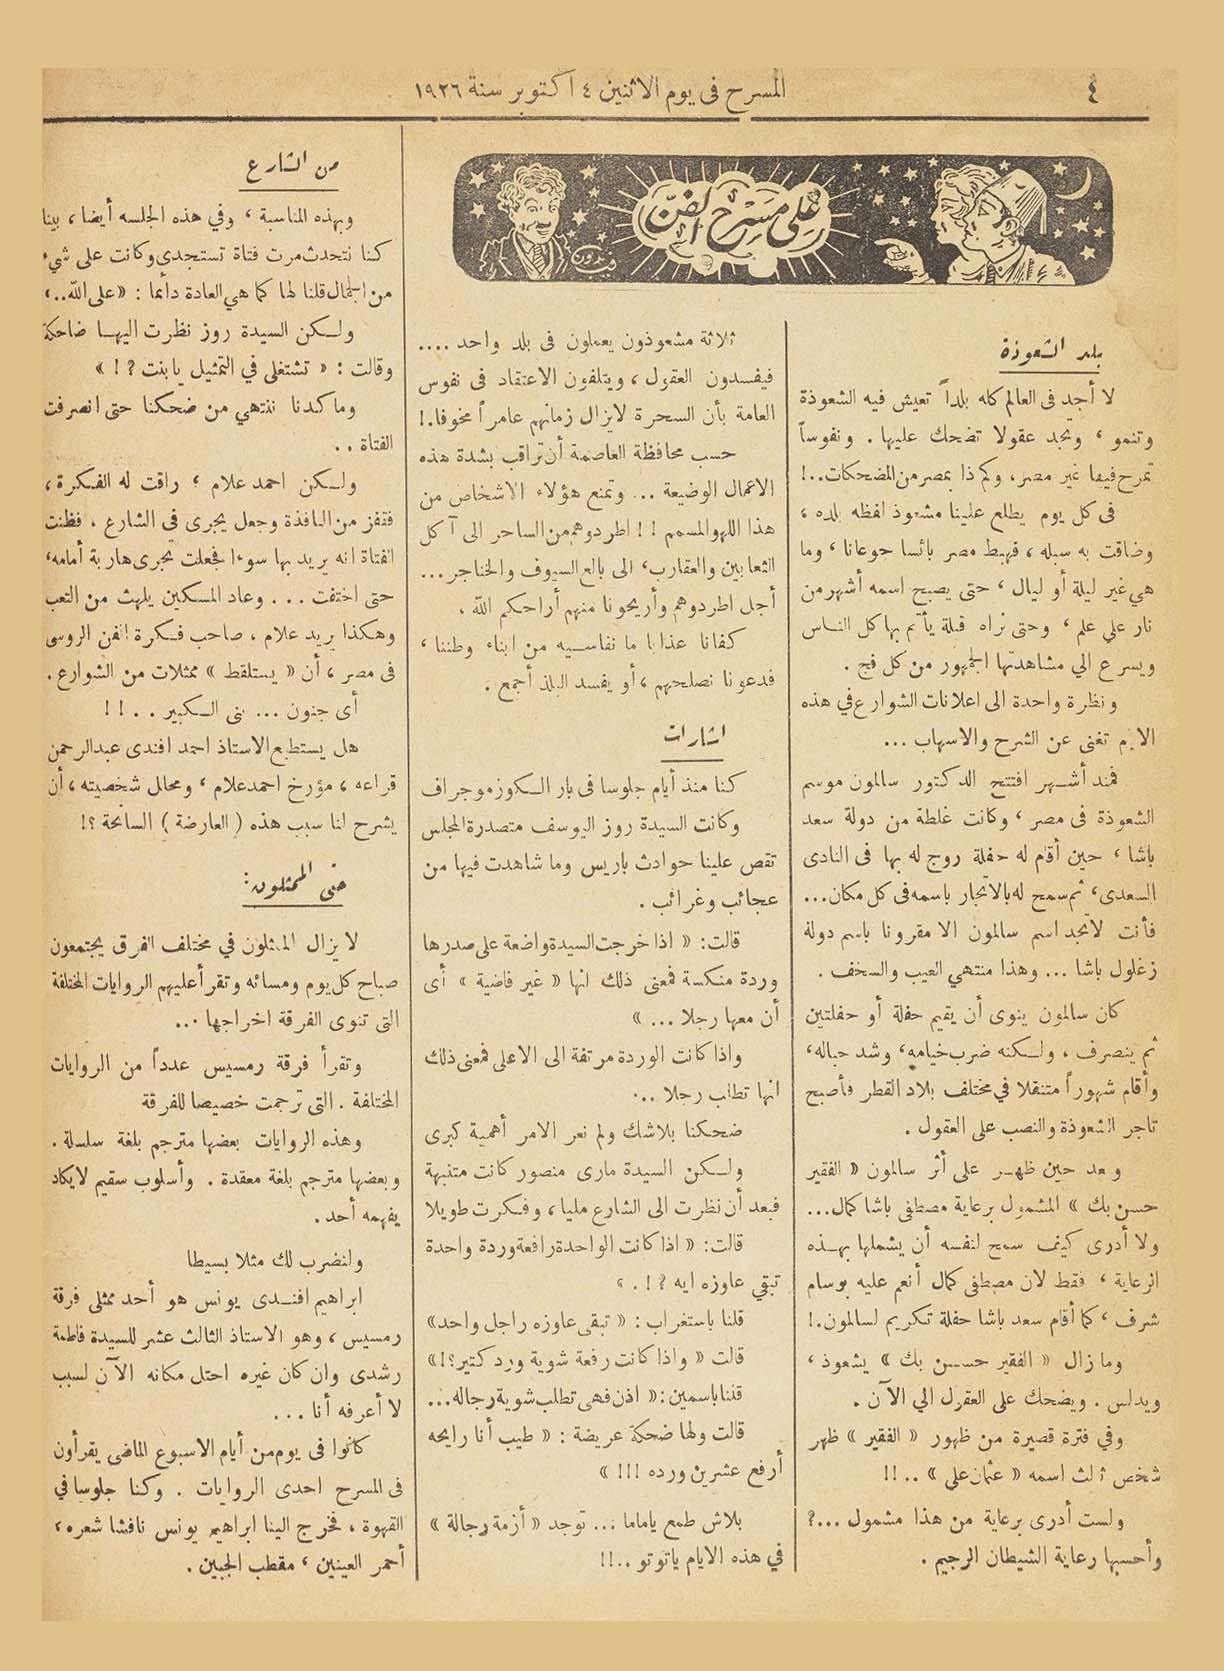 ٤
المسرح فى يوم الاثنين ٤ اكتوبر سنة ١٩٢٦
على مسرح الفن
بلد الشعوذة
لا أجد فى العالم كله بلداً تعيش فيه الشعوذة
وتنمو ، وتجد عقولا تضحك عليها . ونفوساً
تمرح فيها غير مصر ، وكم ذا بمصر من المضحكات..!
فى كل يوم يطلع علينا مشعوذ لفظه بلده ،
وضاقت به سبله ، فهبط مصر بائسا جوعانا ، وما
هي غير ليلة أو ليال ، حتى يصبح اسمه أشهر من
نار علي علم ، وحتى نراه قبلة يأتم بها كل الناس
ويسرع الي مشاهدتها الجمهور من كل فج .
ونظرة واحدة الى اعلانات الشوارع في هذه
الايام تغنى عن الشرح والاسهاب ...
فمنذ أشهر افتتح الدكتور سالمون موسم
الشعوذة فى مصر ، وكانت غلطة من دولة سعد
باشا ، حين أقام له حفلة روج له بها فى النادى
السعدى ، ثم سمح له بالاتجار باسمه فى كل مكان...
فأنت لاتجد اسم سالمون الا مقرونا باسم دولة
زغلول باشا ... وهذا منتهي العيب والسخف .
كان سالمون ينوى أن يقيم حفلة أو حفلتين
ثم ينصرف ، ولكنه ضرب خيامه ، وشد حباله ،
وأقام شهوراً متنقلا في مختلف بلاد القطر فأصبح
تاجر الشعوذة والنصب على العقول .
وبعد حين ظهر على أثر سالمون « الفقير
حسن بك » المشمول برعاية مصطفى باشا كمال...
ولا أدرى كيف سمح لنفسه أن يشملها بهذه
الرعاية ، فقط لان مصطفى كمال أنعم عليه بوسام
شرف ، كما أقام سعد باشا حفلة تكريم لسالمون.!
وما زال « الفقير حسن بك » يشعوذ ،
ويدلس . ويضحك على العقول الي الآن .
وفي فترة قصيرة من ظهور « الفقير » ظهر
شخص ثالث اسمه « عثمان علي » ..!!
ولست أدرى برعاية من هذا مشمول ...؟
وأحسبها رعاية الشيطان الرجيم .
ثلاثة مشعوذون يعملون فى بلد واحد ....
فيفسدون العقول ، ويتلفون الاعتقاد فى نفوس
العامة بأن السحرة لا يزال زمانهم عامراً مخوفا.!
حسب محافظة العاصمة أن تراقب بشدة هذه
الاعمال الوضيعة ... وتمنع هؤلاء الاشخاص من
هذا اللهو المسمم !! اطردوهم من الساحر الى آكل
الثعابين والعقارب ، الى بالع السيوف والخناجر...
أجل اطردوهم وأريحونا منهم أراحكم الله .
كفانا عذابا ما نقاسيه من ابناء وطننا ،
فدعونا نصلحهم ، أو يفسد البلد أجمع .
اشارات
كنا منذ أيام جلوسا فى بار الكوزموجراف
وكانت السيدة روز اليوسف متصدرة المجلس
تقص علينا حوادث باريس وما شاهدت فيها من
عجائب وغرائب .
قالت : « اذا خرجت السيدة واضعة على صدرها
وردة منكسة فمعنى ذلك انها « غير فاضية » أى
أن معها رجلا ... »
واذا كانت الوردة مرتفة الى الاعلى فمعنى ذلك
انها تطلب رجلا ...
ضحكنا بلاشك ولم نعر الامر أهمية كبرى
ولكن السيدة مارى منصور كانت متنبهة
فبعد أن نظرت الى الشارع مليا ، وفكرت طويلا
قالت : « اذا كانت الواحدة رافعة وردة واحدة
تبقي عاوزه ايه ؟! . »
قلنا باستغراب : « تبقى عاوزه راجل واحد »
قالت « واذا كانت رفعة شوية ورد كتير؟!»
قلنا باسمين : « اذن فهى تطلب شوية رجاله...
قالت ولها ضحكة عريضة : « طيب أنا رايحه
أرفع عشرين ورده !!! »
بلاش طمع ياماما ... توجد « أزمة رجالة »
في هذه الايام ياتوتو ..!!
من الشارع
وبهذه المناسبة ، وفي هذه الجلسه أيضا ، بينا
كنا نتحدث مرت فتاة تستجدى وكانت على شىء
من الجمال قلنا لها كما هي العادة دائما : « على الله..»
ولكن السيدة روز نظرت اليها ضاحكة
وقالت : « تشتغلي في التمثيل يا بنت ؟! »
وما كدنا ننتهي من ضحكنا حتى انصرفت
الفتاة ..
ولكن احمد علام ؛ راقت له الفكرة ،
فقفز من النافذة وجعل يجرى فى الشارع . فظنت
الفتاة انه يريد بها سوءا فجعلت تجرى هاربة أمامه ،
حتى اختفت ... وعاد المسكين يلهث من التعب
وهكذا يريد علام ، صاحب فكرة الفن الروسى
فى مصر ، أن « يستلقط » ممثلات من الشوارع .
أى جنون ... بنى الكبير ..!!
هل يستطيع الاستاذ احمد افندى عبدالرحمن
قراعه ، مؤرخ احمد علام ، ومحلل شخصيته ، أن
يشرح لنا سبب هذه ( العارضة ) السانحة ؟!
حتى الممثلون :
لا يزال الممثلون في مختلف الفرق يجتمعون
صباح كل يوم ومسائه وتقرأ عليهم الروايات المختلفة
التى تنوى الفرقة اخراجها ...
وتقرأ فرقة رمسيس عدداً من الروايات
المختلفة . التى ترجمت خصيصا للفرقة
وهذه الروايات بعضها مترجم بلغة سلسلة .
وبعضها مترجم بلغة معقدة . وأسلوب سقيم لايكاد
يفهمه أحد .
ولنضرب لك مثلا بسيطا
ابراهيم افندى يونس هو أحد ممثلى فرقة
رمسيس ، وهو الاستاذ الثالث عشر للسيدة فاطمة
رشدى وان كان غيره احتل مكانه الآن لسبب
لا أعرفه أنا ...
كانوا فى يوم من أيام الاسبوع الماضى يقرأون
فى المسرح احدى الروايات . وكنا جلوسا في
القهوة ، فخرج الينا ابراهيم يونس نافشا شعره ،
أحمر العينين ، مقطب الجبين .